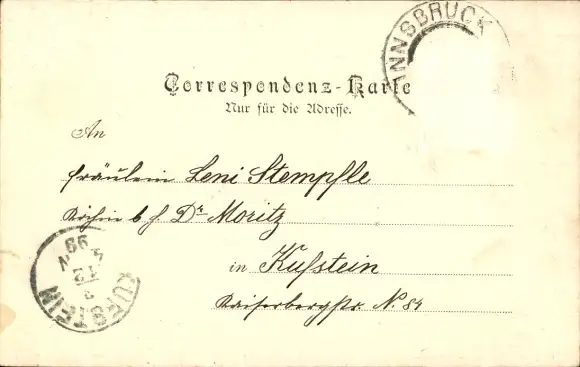 INNSBRUCK
Correspondenz-Karte
Nur für die Adresse.
An
Fräulein Leni Stempfle
Köchin b. H. Dr. Moritz
in Kufstein
Kaiserbergstr. N. 84
KUFSTEIN
99